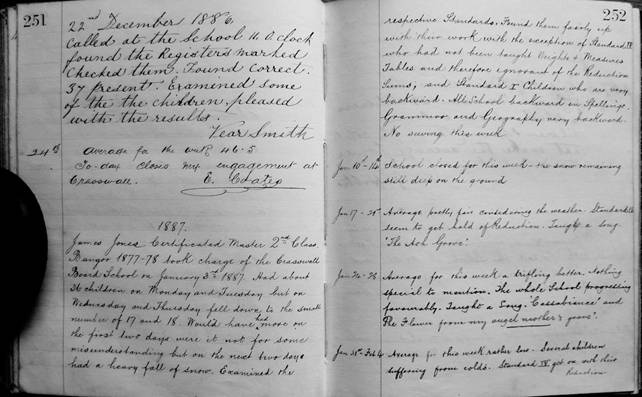 251
22nd December 1886.
Called at the School 11 O.clock
found the Registers marked
Checked them. Found correct.
37 present. Examined some
of the the children, pleased
with the results.
Smith
24th Average for the week 46.5
To-day closes my engagement at
Craswall. E. Coates
1887.
James Jones Certificated Master 2nd Class.
Bangor 1877-78 took charge of the Crasswall
Board School on January 3rd 1887. Had about
36 children on Monday and Tuesday but on
Wednesday and Thursday fell down to the small
number of 17 and 18. Would have had more on
the first two days were it not for some
misunderstanding but on the next two days
had a heavy fall of snow. Examined the
252
respective Standards. Found them fairly up
with their work with the exception of Standard
who had not been taught Weights & Measures
Tables and therefore ignorant of the Reduction
Sums; and Standard I Children who are very
backward. All School backward in Spelling.
Grammar and Geography very backward.
No sewing this week
Jan 10th - 14th School closed for this week - the snow remaining
still deep on the ground
Jan 17 - 21st Average pretty fair considering the weather. Standard
seem to get hold of Reduction. Taught a song
'The Ash Grove'.
Jan 24 - 28 Average for this week a trifling better. Nothing
special to mention. The whole School progressing
favourably. Taught a Song. 'Cassabianca' and
The Flower from my angel mother's grave'.
Jan 31st - Feb 4 Average for this week rather low. Several children
suffering from colds. Standard IV get on with their
Reduction